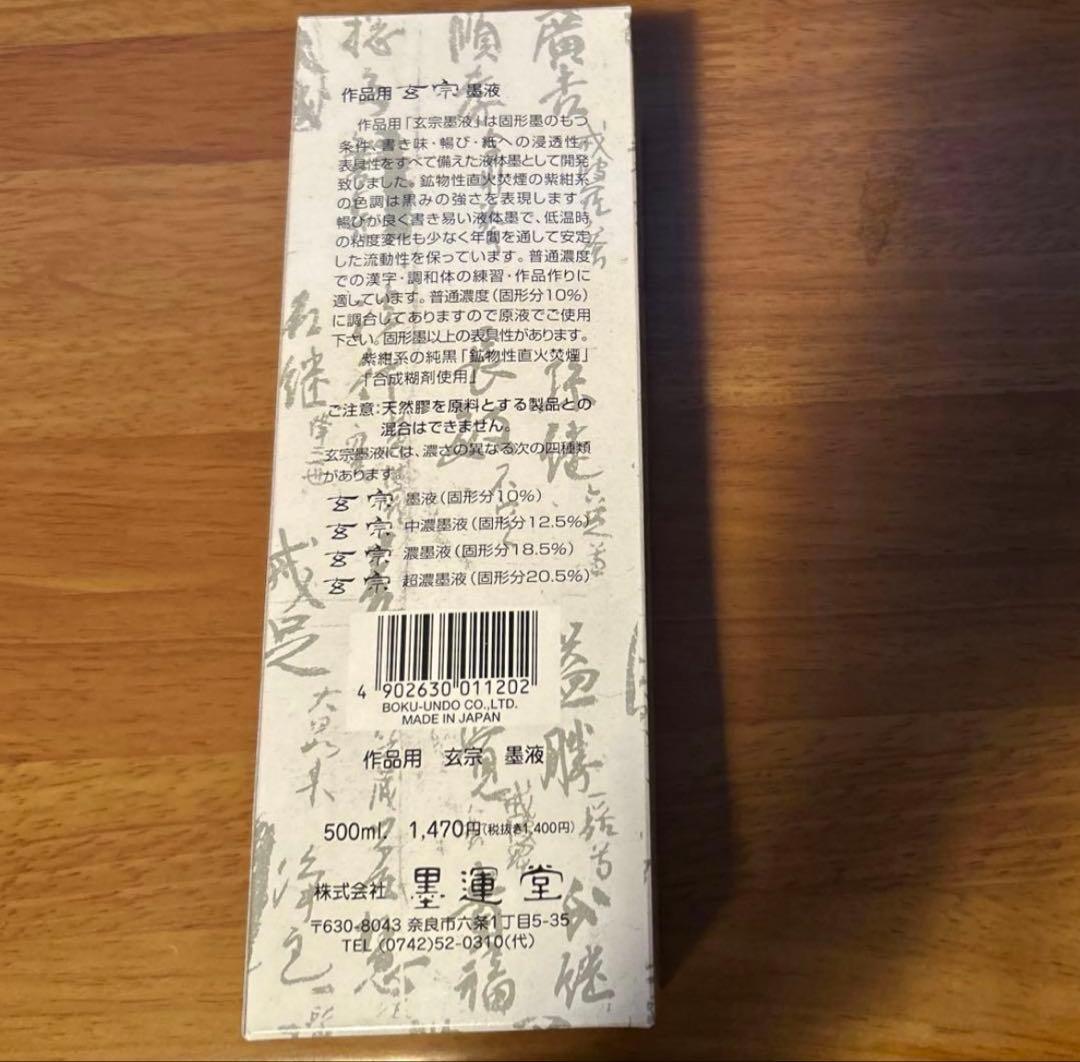 作品用 玄宗 墨液
作品用「玄宗墨液」は固形墨のもつ
条件、書き味・暢び・紙への浸透性、
表具性をすべて備えた液体墨として開発
致しました。鉱物性直火焚煙の紫紺系
の色調は黒みの強さを表現します。
暢びが良く書き易い液体墨で、低温時
の粘度変化も少なく年間を通して安定
した流動性を保っています。普通濃度
での漢字・調和体の練習・作品作りに
適しています。普通濃度(固形分10%)
に調合してありますので原液でご使用
下さい。固形墨以上の表具性があります。
紫紺系の純黒「鉱物性直火焚煙」
「合成糊剤使用」
ご注意:天然膠を原料とする製品との
混合はできません。
玄宗墨液には、濃さの異なる次の四種類
があります。
玄宗 墨液(固形分10%)
玄宗 中濃墨液(固形分12.5%)
玄宗 濃墨液(固形分18.5%)
玄宗 超濃墨液(固形分20.5%)
4 902630 011202
BOKU-UNDO CO.,LTD.
MADE IN JAPAN
作品用 玄宗 墨液
500ml. 1,470円(税抜き1,400円)
株式会社 墨運堂
〒630-8043 奈良市六条1丁目5-35
TEL (0742)52-0310(代)